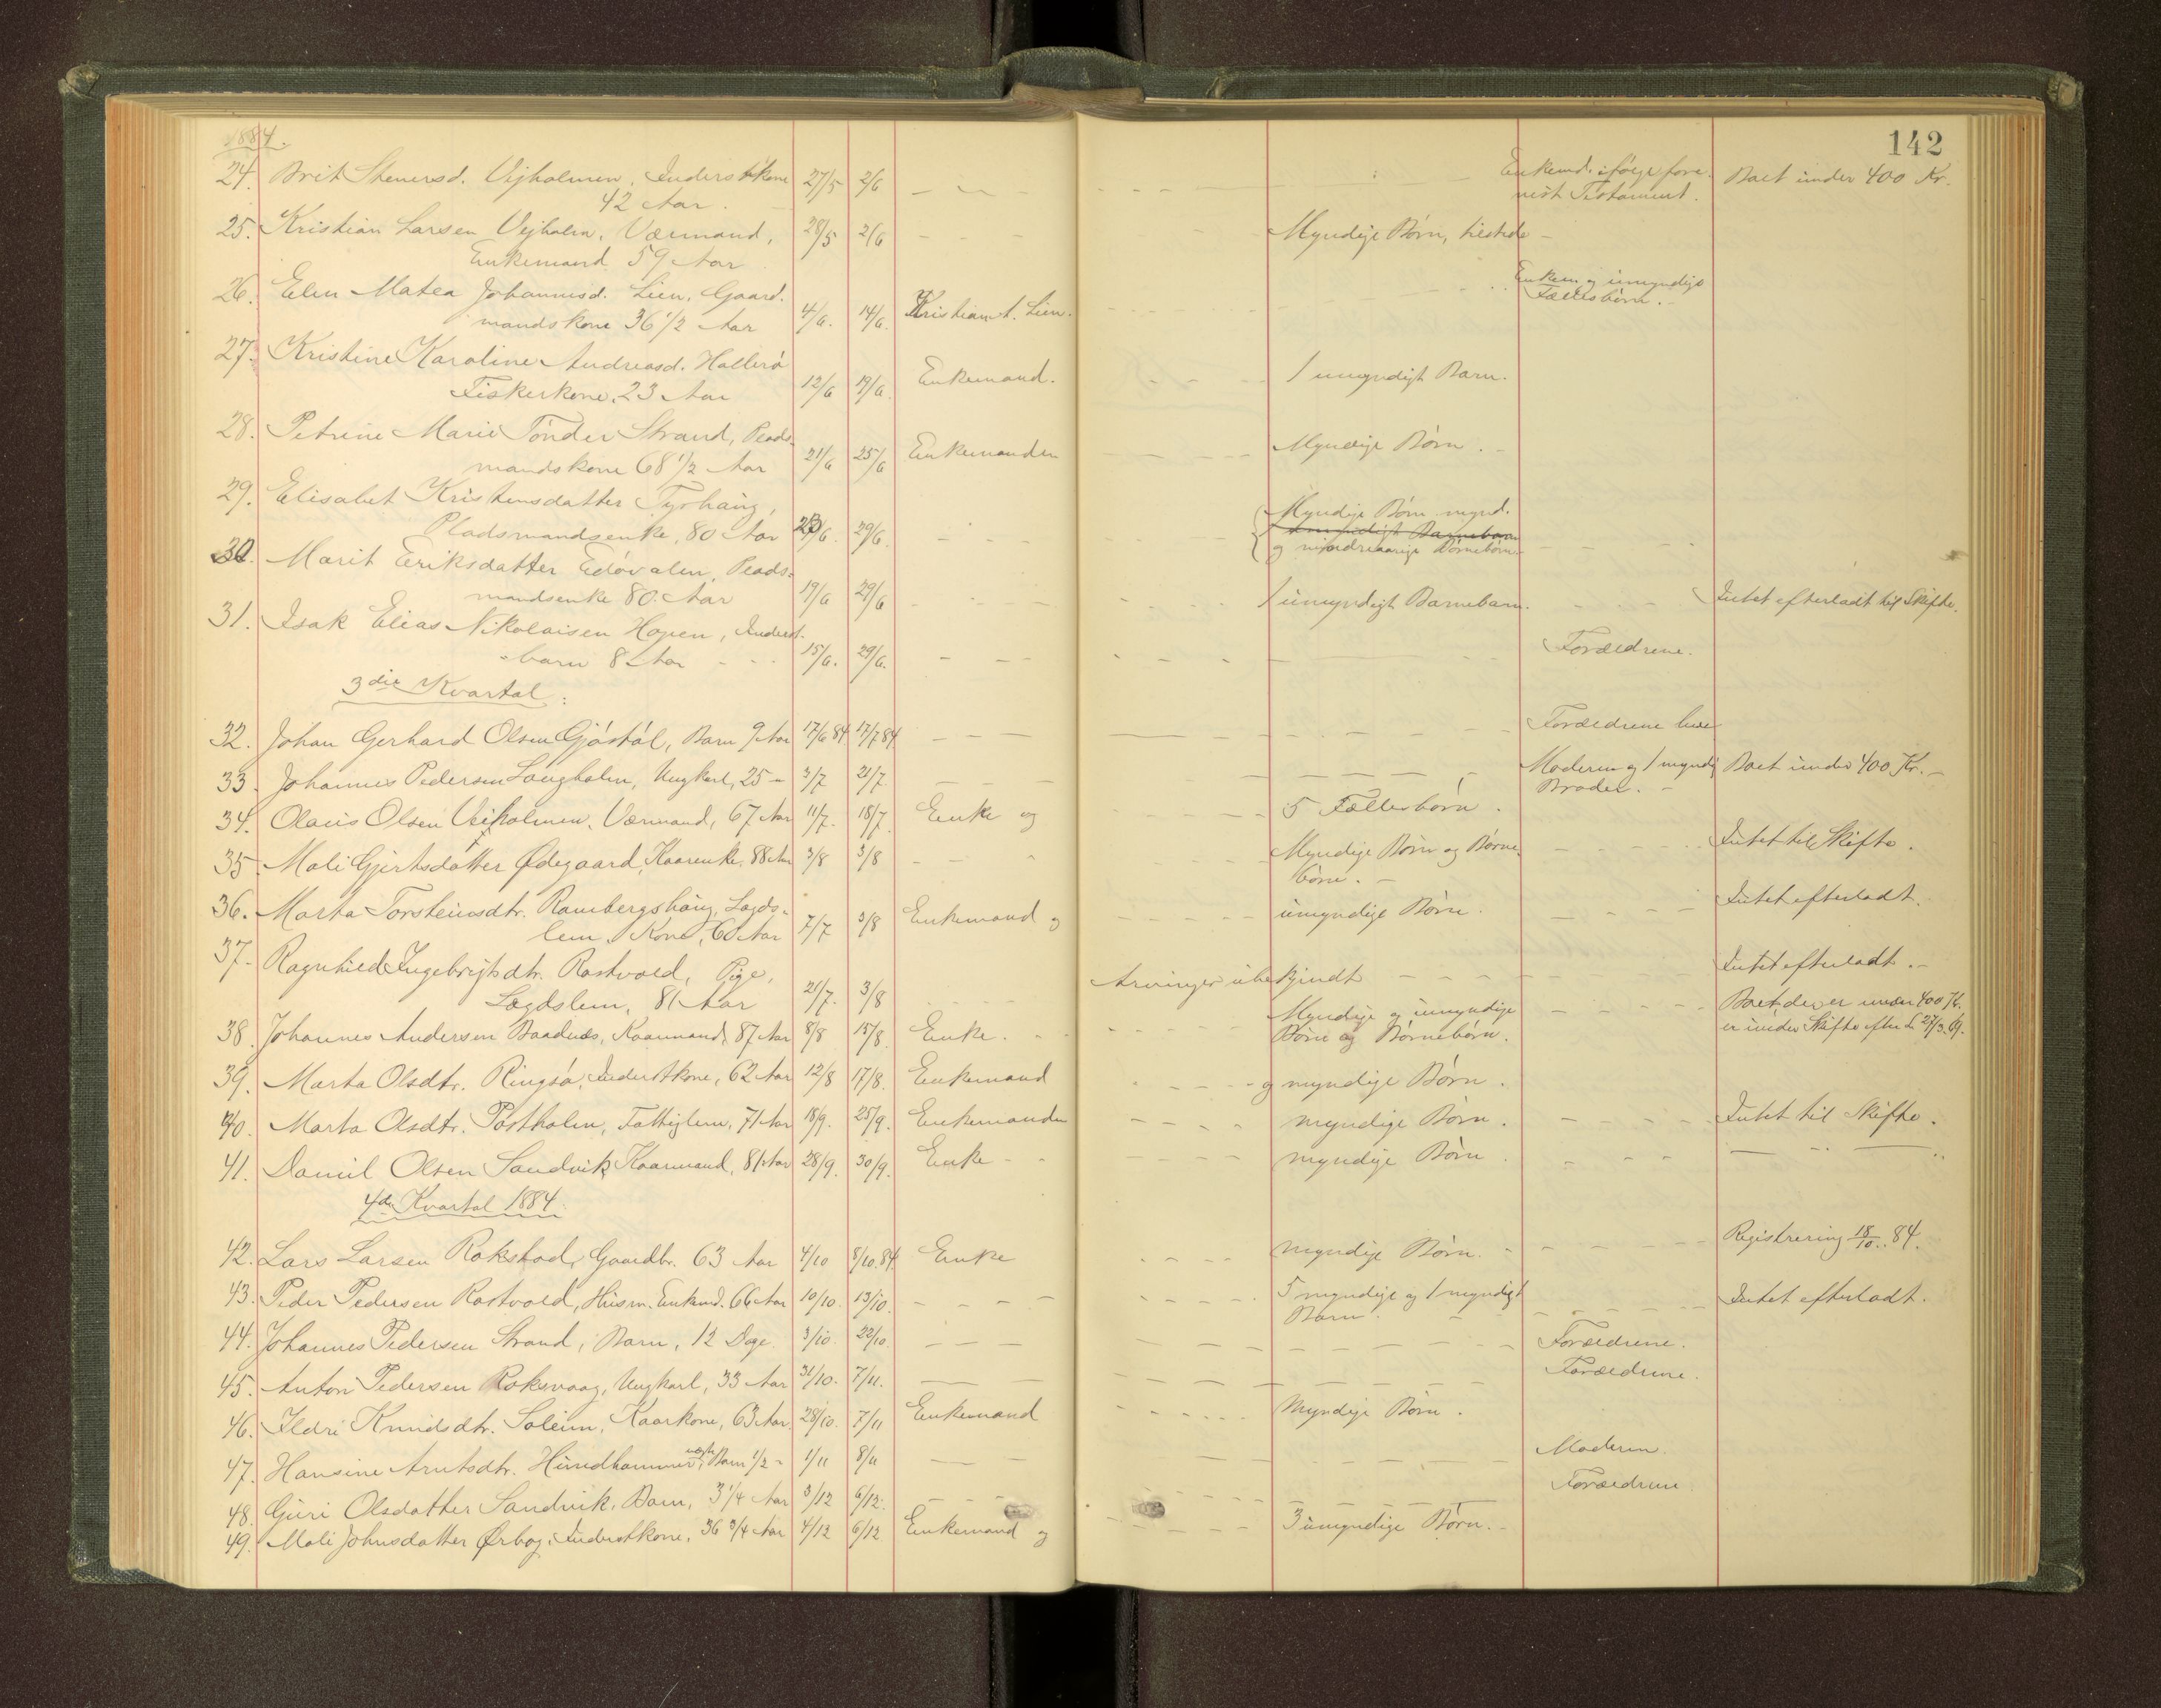 1884.
142
24. Brit Stenersd. Vejholmen, Inderstkone 27/5 2/6 Enkemd. ifølge fore- Boet under 400 Kr.
42 Aar. nist Testament.
25. Kristian Larsen Vejholm, Værmand, 28/5 2/6 Myndige Børn, tilstede
Enkemand 59 Aar
26. Elen Matea Johannesd. Lien, Gaard- Enkem. og umyndige
mandskone 36 1/2 Aar 4/6. 14/6. Kristian t. Lien. Fællesbørn.
27. Kristine Karoline Andreasd. Hallerø
Fiskerkone, 23 Aar 12/6 19/6. Enkemand. 1 umyndigt Barn.
28. Petrine Marie Tønder Strand, Plads-
mandskone 68 1/2 Aar 21/6 25/6 Enkemanden Myndige Børn.
29. Elisabet Kristensdatter Tyrhaug, Myndige Børn mynd.
Pladsmandsenke, 80 Aar 23/6. 29/6. umyndigt Barnebarn
og mindreaarige Børnebørn
30. Marit Eriksdatter Edøvalen, Plads-
mandsenke 80. Aar 19/6 29/6 1 umyndigt Barnebarn. Intet efterladt til Skifte.
31. Isak Elias Nikolaisen Hopen, Inderst-
barn 8 Aar 15/6. 29/6. Forældrene.
3die Kvartal:
32. Johan Gerhard Olsen Gjøstøl, Barn 9 Aar 17/6 84 17/7 84 Forældrene leve
33. Johannes Pedersen Langholm, Ungkarl, 25 " 3/7 21/7. Moderen og 1 myndig Boet under 400 Kr.
Broder.
34. Olaus Olsen Veiholmen, Værmand, 67 Aar 11/7. 18/7 Enke og 5 Fællesbørn.
35. Mali Gjertsdatter Ødegaard, Kaarenke, 88 Aar 3/8 3/8 Myndige Børn og Børne- Intet til Skifte.
børn.
36. Marta Torsteinsdtr. Rambergshaug, Lægds- Intet efterladt.
lem, Kone, 60 Aar 7/7 3/8 Enkemand og umyndige Børn.
37. Ragnhild Ingebrigtsdtr. Rostvold, Pige, Arvinger ubekjendt Intet efterladt.
Lægdslem, 81 Aar 21/7. 3/8
38. Johannes Andersen Baadnes, Kaarmand, 87 Aar 8/8 15/8. Enke. Myndige og umyndige Boet der er under 400 Kr.
Børn og Børnebørn. er under Skifte efter L 27/3 69.
39. Marta Olsdtr. Ringsø, Inderstkone, 62 Aar 12/8 17/8. Enkemand og myndige Børn.
40. Marta Olsdtr. Postholm, Fattiglem, 71 Aar 18/9. 25/9. Enkemanden myndige Børn. Intet til Skifte.
41. Daniel Olsen Sandvik, Kaarmand, 81 Aar 28/9. 30/9. Enke myndige Børn
4de Kvartal 1884.
42. Lars Larsen Rokstad, Gaardbr. 63 Aar 4/10 8/10.84. Enke myndige Børn. Registrering 18/10. 84.
43. Peder Pedersen Rostvold, Husm. Enkmd. 66 Aar 10/10. 13/10. 5 myndige og 1 myndigt Intet efterladt.
Barn.
44. Johannes Pedersen Strand, Barn, 12 Dage. 3/10. 22/10. Forældrene.
45. Anton Pedersen Roksvaag, Ungkarl, 33 Aar 31/10. 7/11. Forældrene.
46. Ildri Knudsdtr. Soleim, Kaarkone, 63 Aar 28/10. 7/11 Enkemand Myndige Børn.
47. Hansine Arntsdtr. Hundhammer, uægte Barn 1/2 " 1/11 8/11 Moderen.
48. Guri Olsdatter Sandvik, Barn, 3 1/4 Aar 3/12 6/12. Forældrene
49. Mali Johnsdatter Ørbog, Inderstkone, 36 3/4 Aar 4/12 6/12 Enkemand og 3 umyndige Børn.